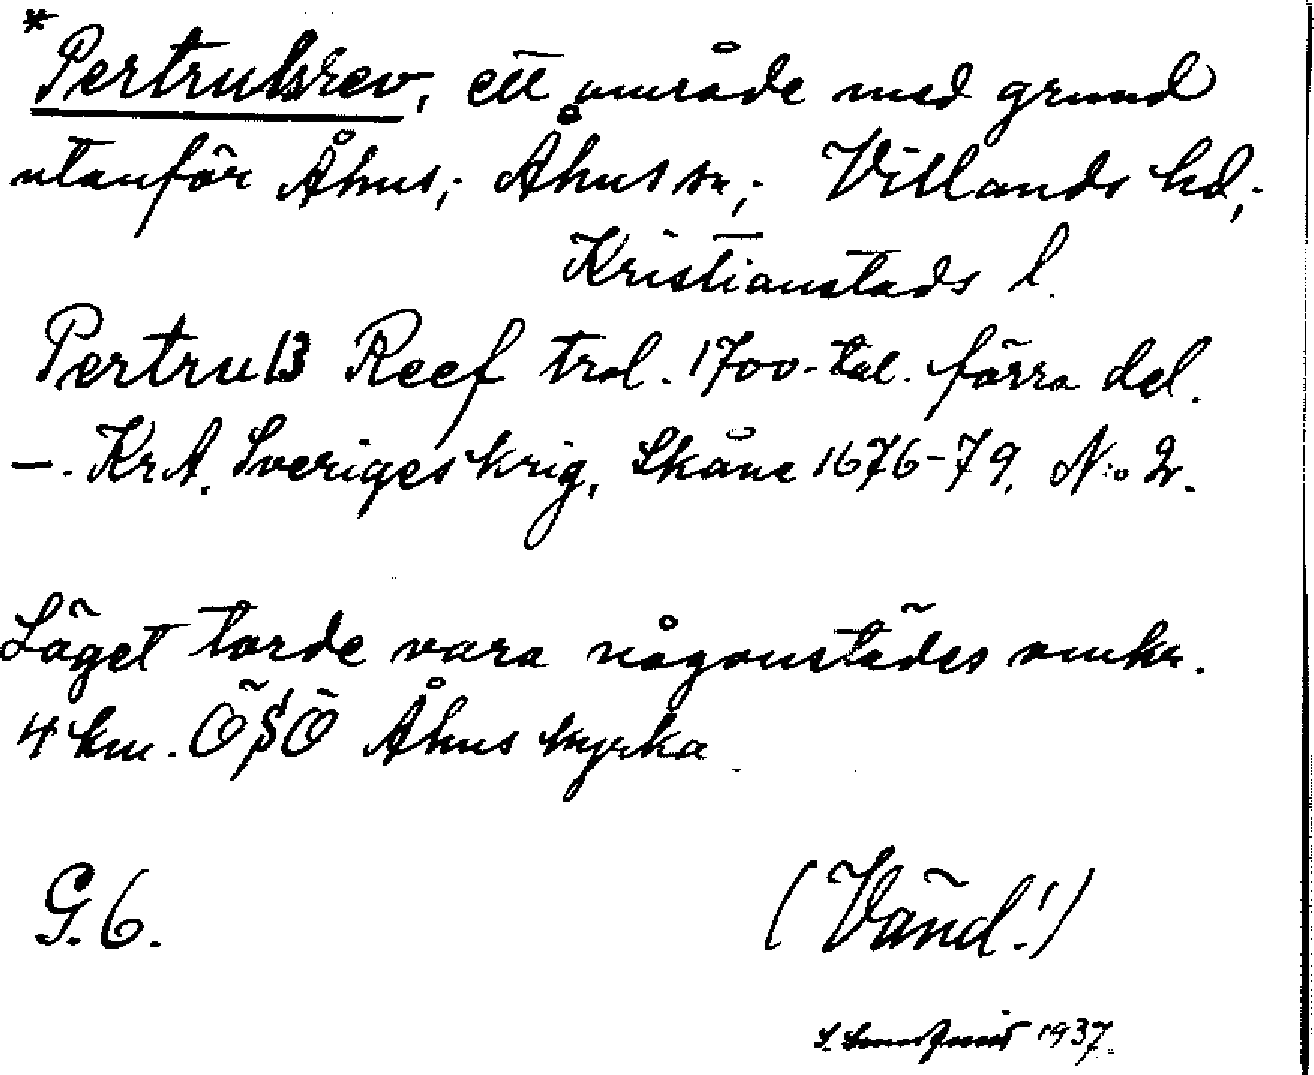 *Pertrulsrev, ett område med grund
utanför Åhus; Åhus sn; Villands hd;
Kristianstads l.
Pertruls Reef trol. 1700-tal. förra del.
—. KrA. Sveriges krig, Skåne 1676-79, N:o 2.
Läget torde vara någonstädes omkr.
4 km. ÖSÖ Åhus kyrka
G. 6.
(Vänd!)
1937.